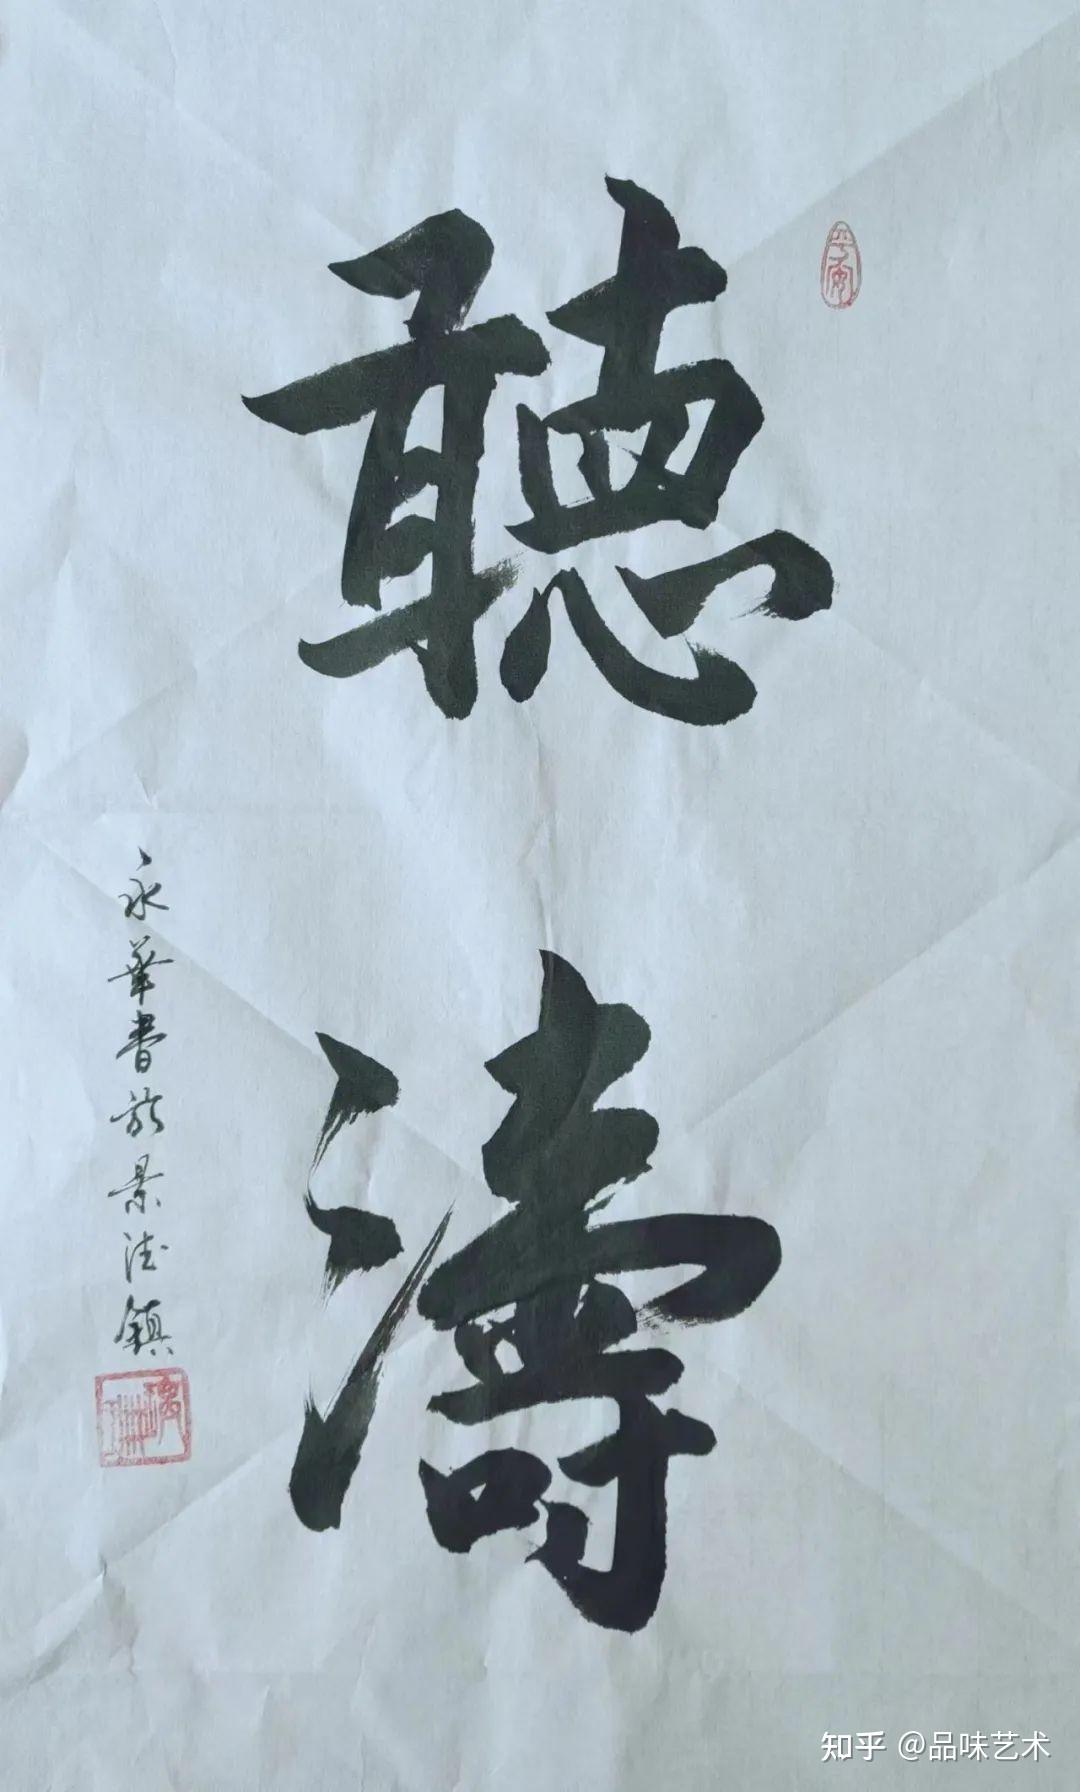 聽
濤
永華書於景德鎮
知乎 @品味艺术